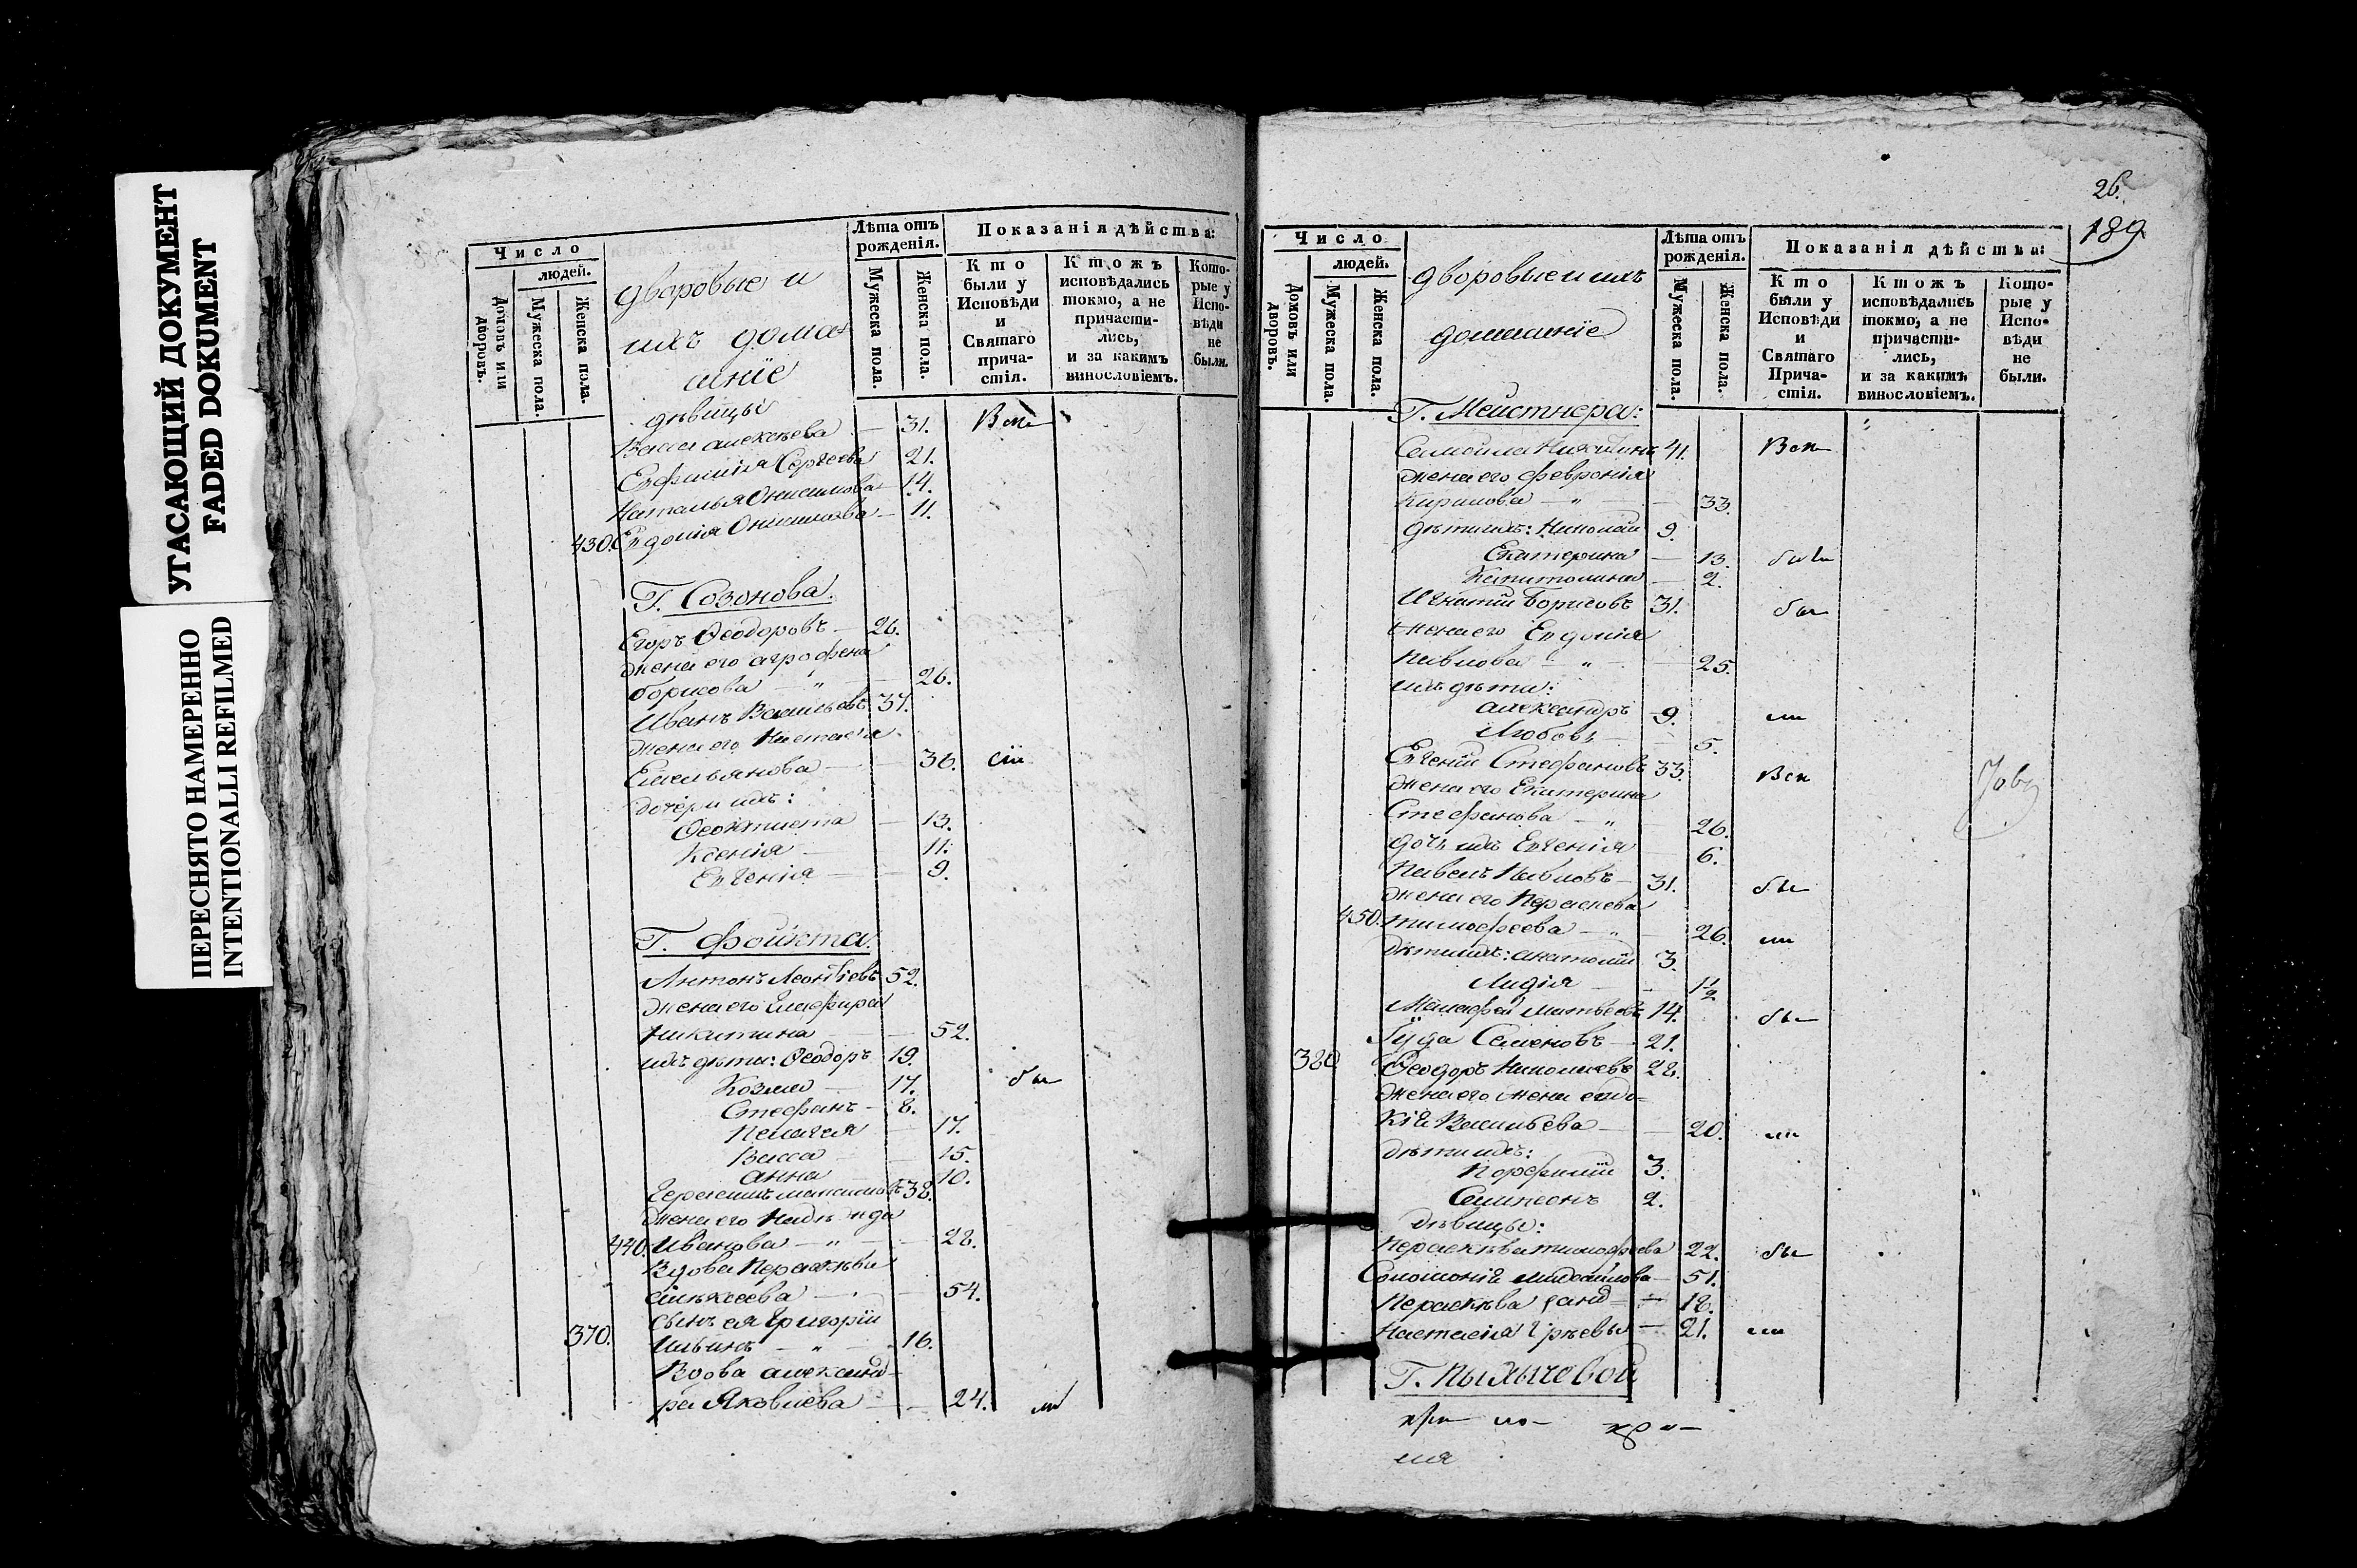 УГАСАЮЩИЙ ДОКУМЕНТ
FADED DOKUMENT
ПЕРЕСНЯТО НАМЕРЕННО
INTENTIONALLI REFILMED
Число
людей.
Домовъ или дворовъ.
Мужеска пола.
Женска пола.
Дворовые и
ихъ дома
шніе
Лѣта отъ рожденія.
Мужеска пола.
Женска пола.
Показанія дѣйства:
Кто были у Исповѣди и Святаго причастія.
Ктожъ исповѣдались токмо, а не причастились, и за какимъ винословіемъ.
Которые у Исповѣди не были.
дѣвицы
Васса Алексѣева — 31.
Евфимія Сергеева 21.
Наталья Онисимова — 14.
430. Евдокія Онисимова — 11.
Г. Созонова.
Егоръ Ѳеодоровъ — 26.
жена его Агрофена
Борисова — " — 26.
Иванъ Васильевъ 37.
жена его Настасія
Емельянова — 36.
дочери ихъ:
Ѳеоктиста — 13.
Ксенія — 11.
Евгенія — 9.
Г. Фойкта.
Антонъ Леонтіевъ 52.
жена его Глафира
Никитина — 52.
ихъ дѣти: Ѳеодоръ 19.
Козма — 17.
Стефанъ — 8.
Пелагея — 17.
Васса — 15.
Анна — 10.
Герасимъ Максимовъ 38.
жена его Надежда
440. Иванова — " — 28.
Вдова Параскѣва
Алексеева — 54.
сынъ ея Григорій
370. Ильинъ — " — 16.
Вдова Александ-
ра Яковлева — 24.
26.
189
Число
людей.
Домовъ или дворовъ.
Мужеска пола.
Женска пола.
Дворовые и ихъ
домашніе
Лѣта отъ рожденія.
Мужеска пола.
Женска пола.
Показанія дѣйства:
Кто были у Исповѣди и Святаго Причастія.
Ктожъ исповѣдались токмо, а не причастились, и за какимъ винословіемъ.
Которые у Исповѣди не были.
Г. Мейстнера:
Самойла Никитинъ 41.
жена его Февронія
Кирилова — " — 33.
дѣти ихъ: Николай 9.
Екатерина — 13.
Капитолина — 2.
Игнатій Борисовъ 31.
жена его Евдокія
Павлова — " — 25.
ихъ дѣти:
Александръ 9.
Любовь — 5.
Евгеній Стефановъ 33.
жена его Екатерина
Стефанова — " — 26.
дочь ихъ Евгенія 6.
Павелъ Павловъ — 31.
жена его Параскева
450. Тимофеева — " — 26.
дѣти ихъ: Анатолій 3.
Лидія — 1½
Матвѣевъ 14.
Іуда Семеновъ — 21.
380 Ѳеодоръ Николаевъ 28.
Васильева — 20.
дѣти ихъ:
Порфирій 3.
Симеонъ 2.
дѣвицы:
Параскѣва Тимофеева 22.
Соломонія Михайлова — 51.
Параскѣва — 18.
Настасія — 21.
Г. Пыхачевой